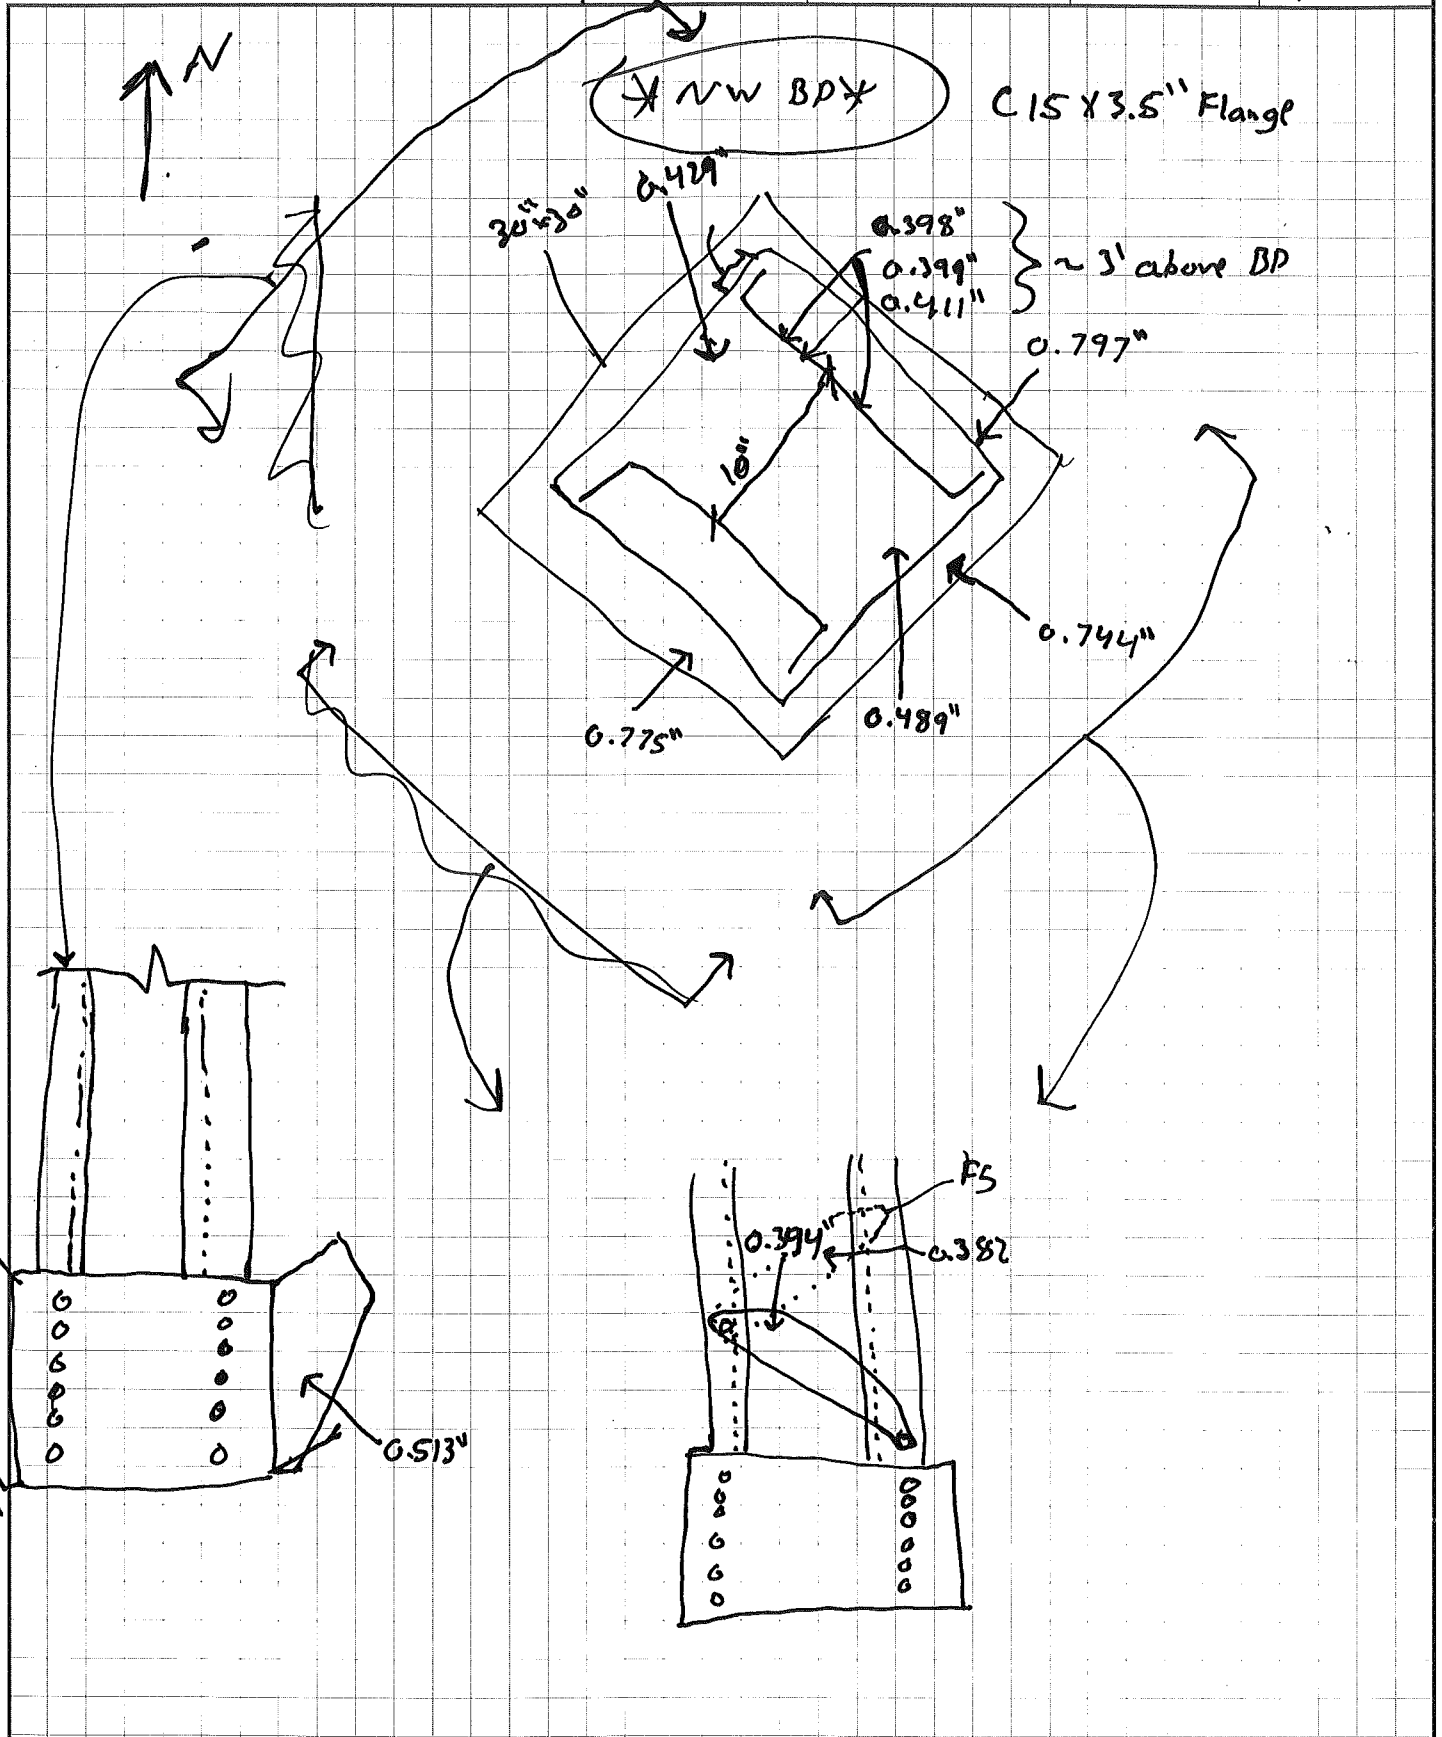 N
* NW BP *
C 15 X 3.5" Flange
0.429"
30"x30"
0.398"
0.399"
0.411"
~ 3' above BP
0.797"
10"
0.744"
0.489"
0.775"
FS
0.394"
0.382
0.513"